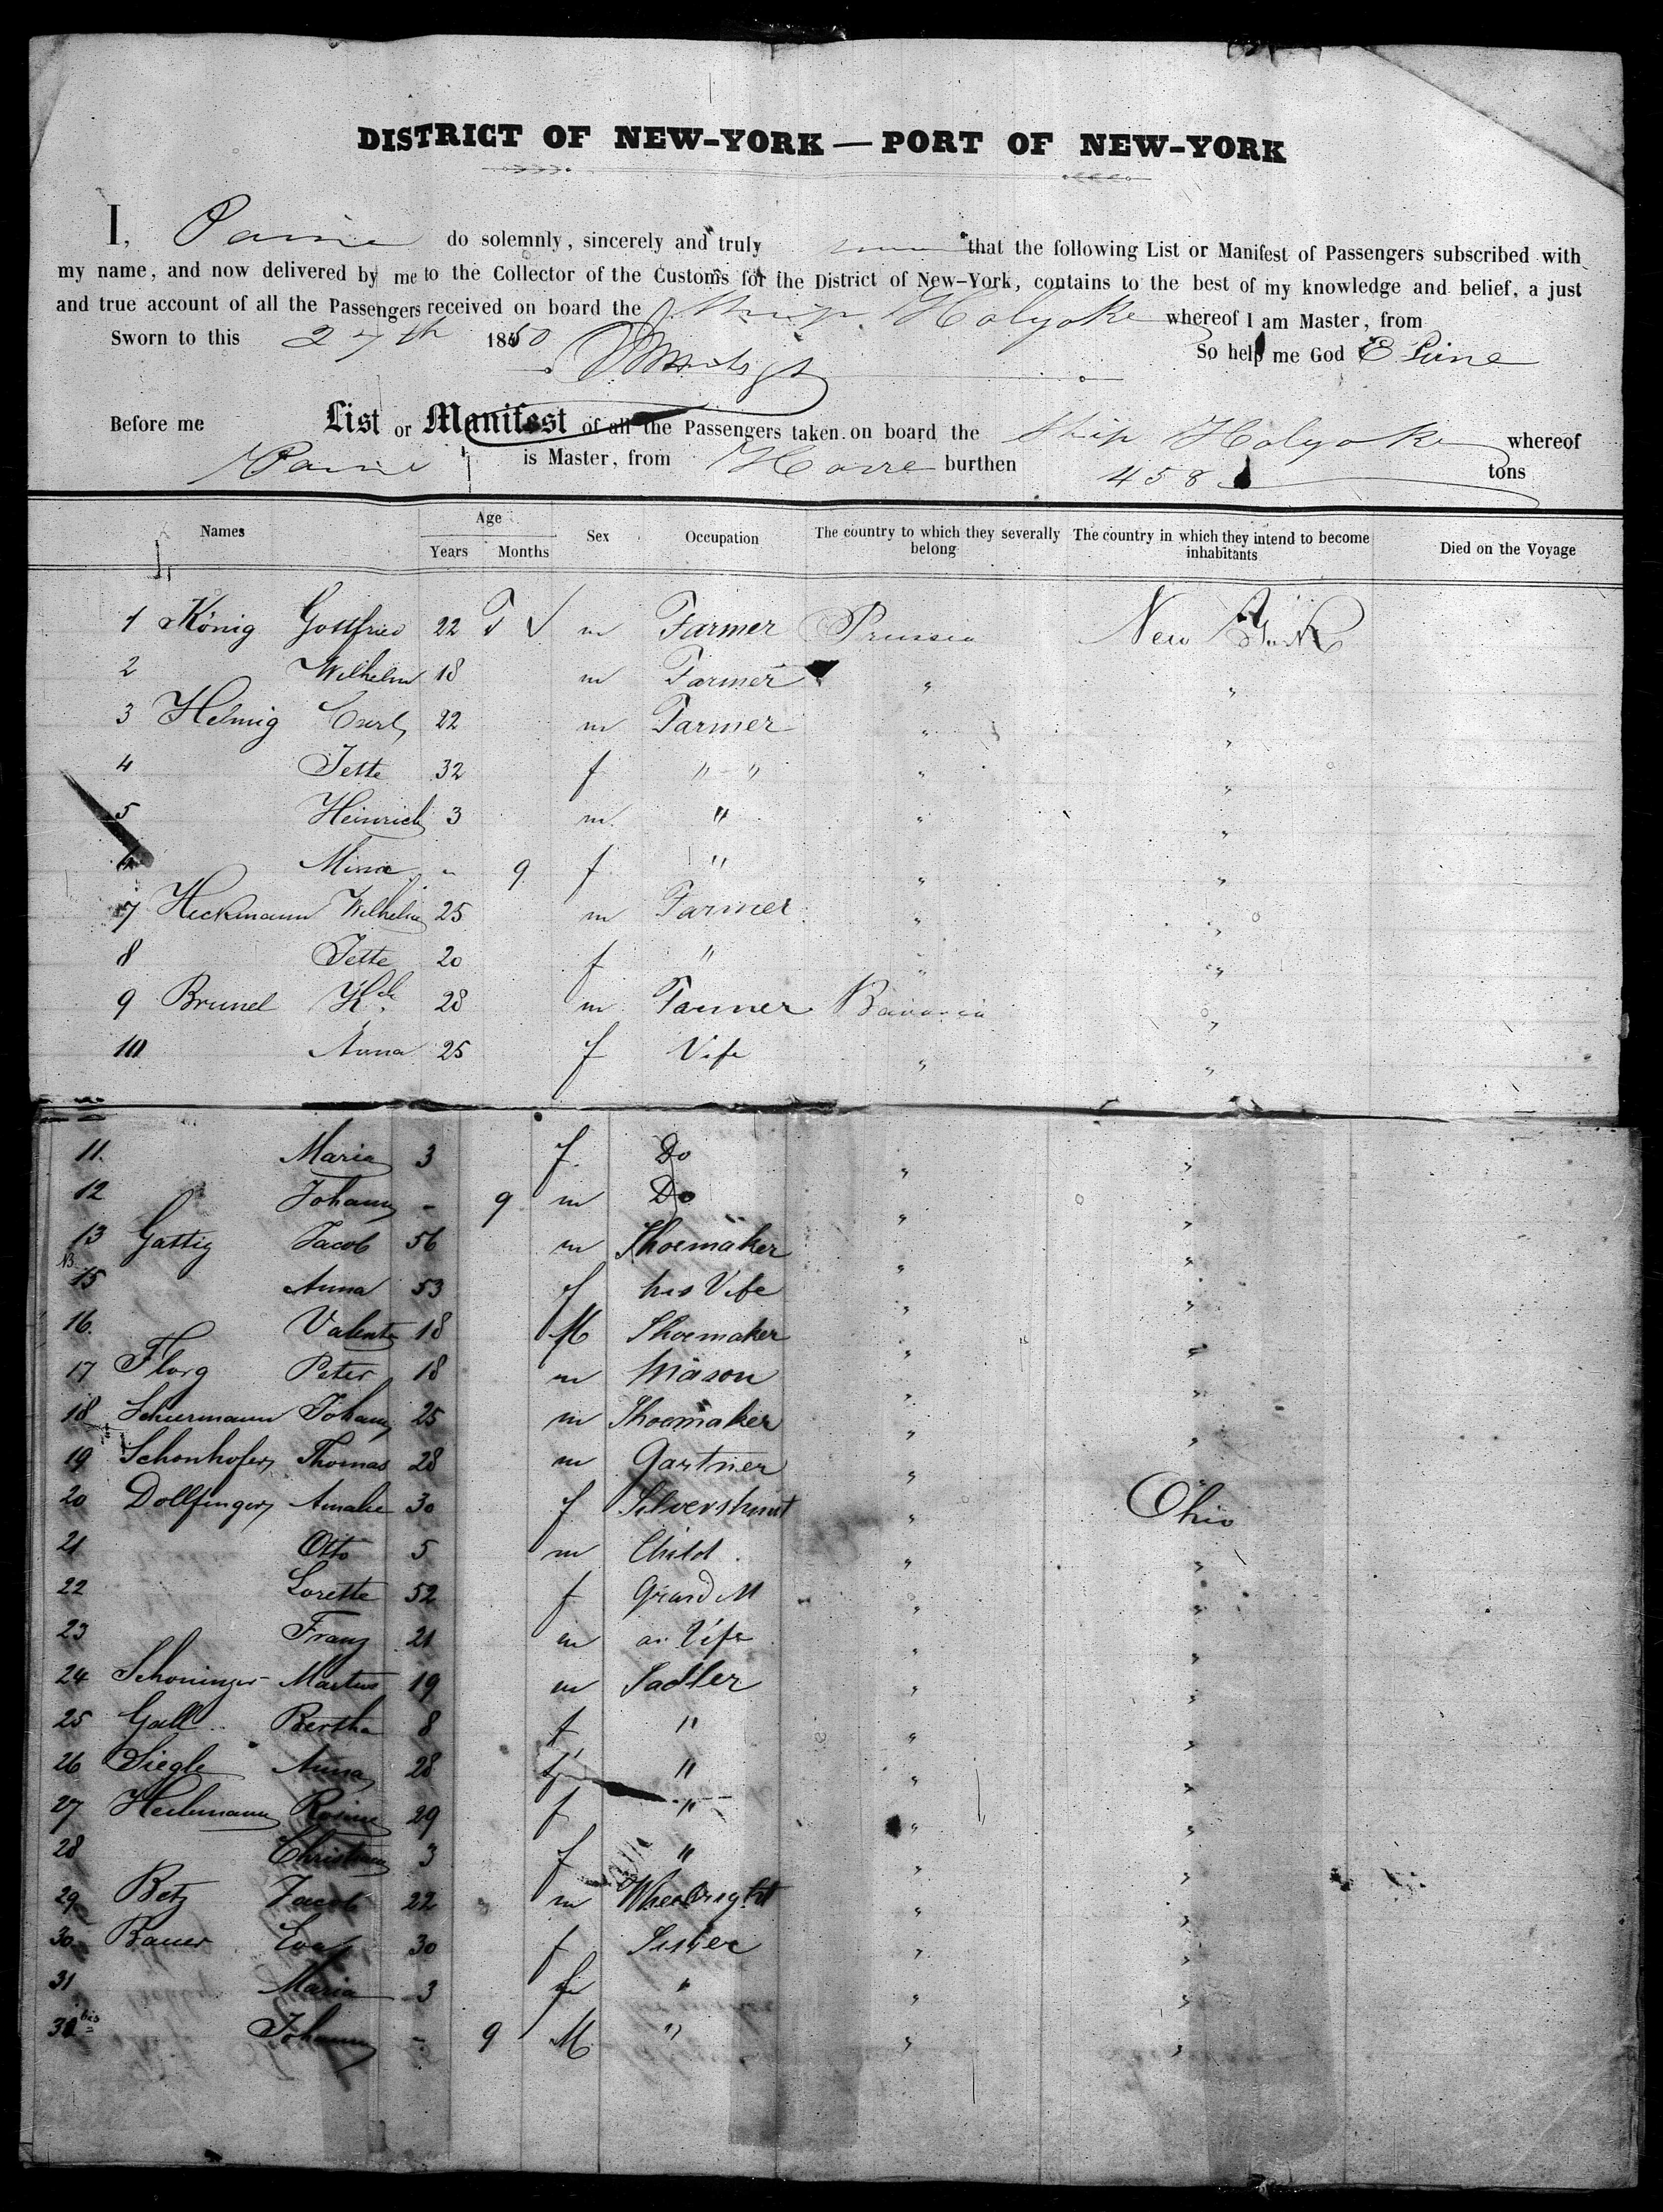 DISTRICT OF NEW-YORK — PORT OF NEW-YORK
I, Paine do solemnly, sincerely and truly that the following List or Manifest of Passengers subscribed with
my name, and now delivered by me to the Collector of the Customs for the District of New-York, contains to the best of my knowledge and belief, a just
and true account of all the Passengers received on board the Ship Holyoke whereof I am Master, from
Sworn to this 27th 1850 So help me God
Before me List or Manifest of all the Passengers taken on board the Ship Holyoke whereof
Paine is Master, from Havre burthen 458 tons
Names Age Sex Occupation The country to which they severally belong The country in which they intend to become inhabitants Died on the Voyage
Years Months
1 König Gottfried 22 m Farmer Prussia New York
2 Wilhelm 18 m Farmer " "
3 Helmig Carl 22 m Farmer " "
4 Jette 32 f " " " "
5 Heinrich 3 m " " "
6 Mina - 9 f " " "
7 Heckmann Wilhelm 25 m Farmer " "
8 Jette 20 f " " "
9 Brunel 28 m Farmer Bavaria "
10 Anna 25 f Vife " "
11. Maria 3 f. Do " "
12 Johann - 9 m Do " "
13 Gattig Jacob 56 m Shoemaker " "
15 Anna 53 f his Vife " "
16. Valentn 18 M Shoemaker " "
17 Florg Peter 18 m Mason " "
18 Schurmann Johann 25 m Shoemaker " "
19 Schonhofer Thomas 28 m Gartner " "
20 Dollfinger Amalie 30 f " Ohio
21 Otto 5 m Child " "
22 Lorette 52 f Grand M " "
23 Franz 21 m Vife " "
24 Schoninger Martin 19 m Sadler " "
25 Gall Bertha 8 f " " "
26 Siegle Anna 28 f " " "
27 Heilemann Rosine 29 f " " "
28 Christian 3 f " " "
29 Betz Jacob 22 m " "
30 Bauer Eva 30 f Sister " "
31 Maria 3 f " " "
31 bis Johann - 9 M " " "